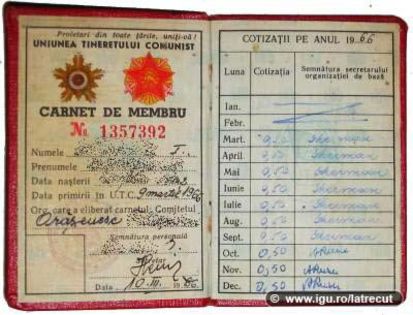 Proletari din toate țările, uniți-vă!
UNIUNEA TINERETULUI COMUNIST
CARNET DE MEMBRU
№ 1357392
Numele I.
Prenumele
Data nașterii
Data primirii în U.T.C. 9 martie 1966
Org. care a eliberat carnetul, Comitetul
orășenesc
Semnătura personală
Data 10. III. 1966
COTIZAȚII PE ANUL 1966
Luna Cotizația Semnătura secretarului organizației de bază
Ian.
Febr.
Mart. 0,50
April. 0,50
Mai 0,50
Iunie 0,50
Iulie 0,50
Aug. 0,50
Sept. 0,50
Oct. 0,50
Nov. 0,50
Dec. 0,50
© www.igu.ro/latrecut